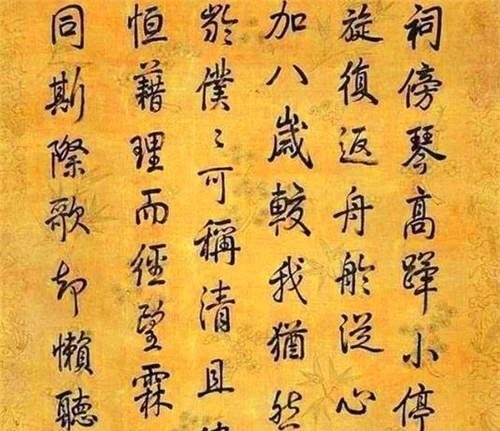 祠傍琴高蹕小停
旋復返舟舲從心
加八歲較我猶然
於僕〻可稱清且
恒藉理而經望霖
同斯際歌却懶聽